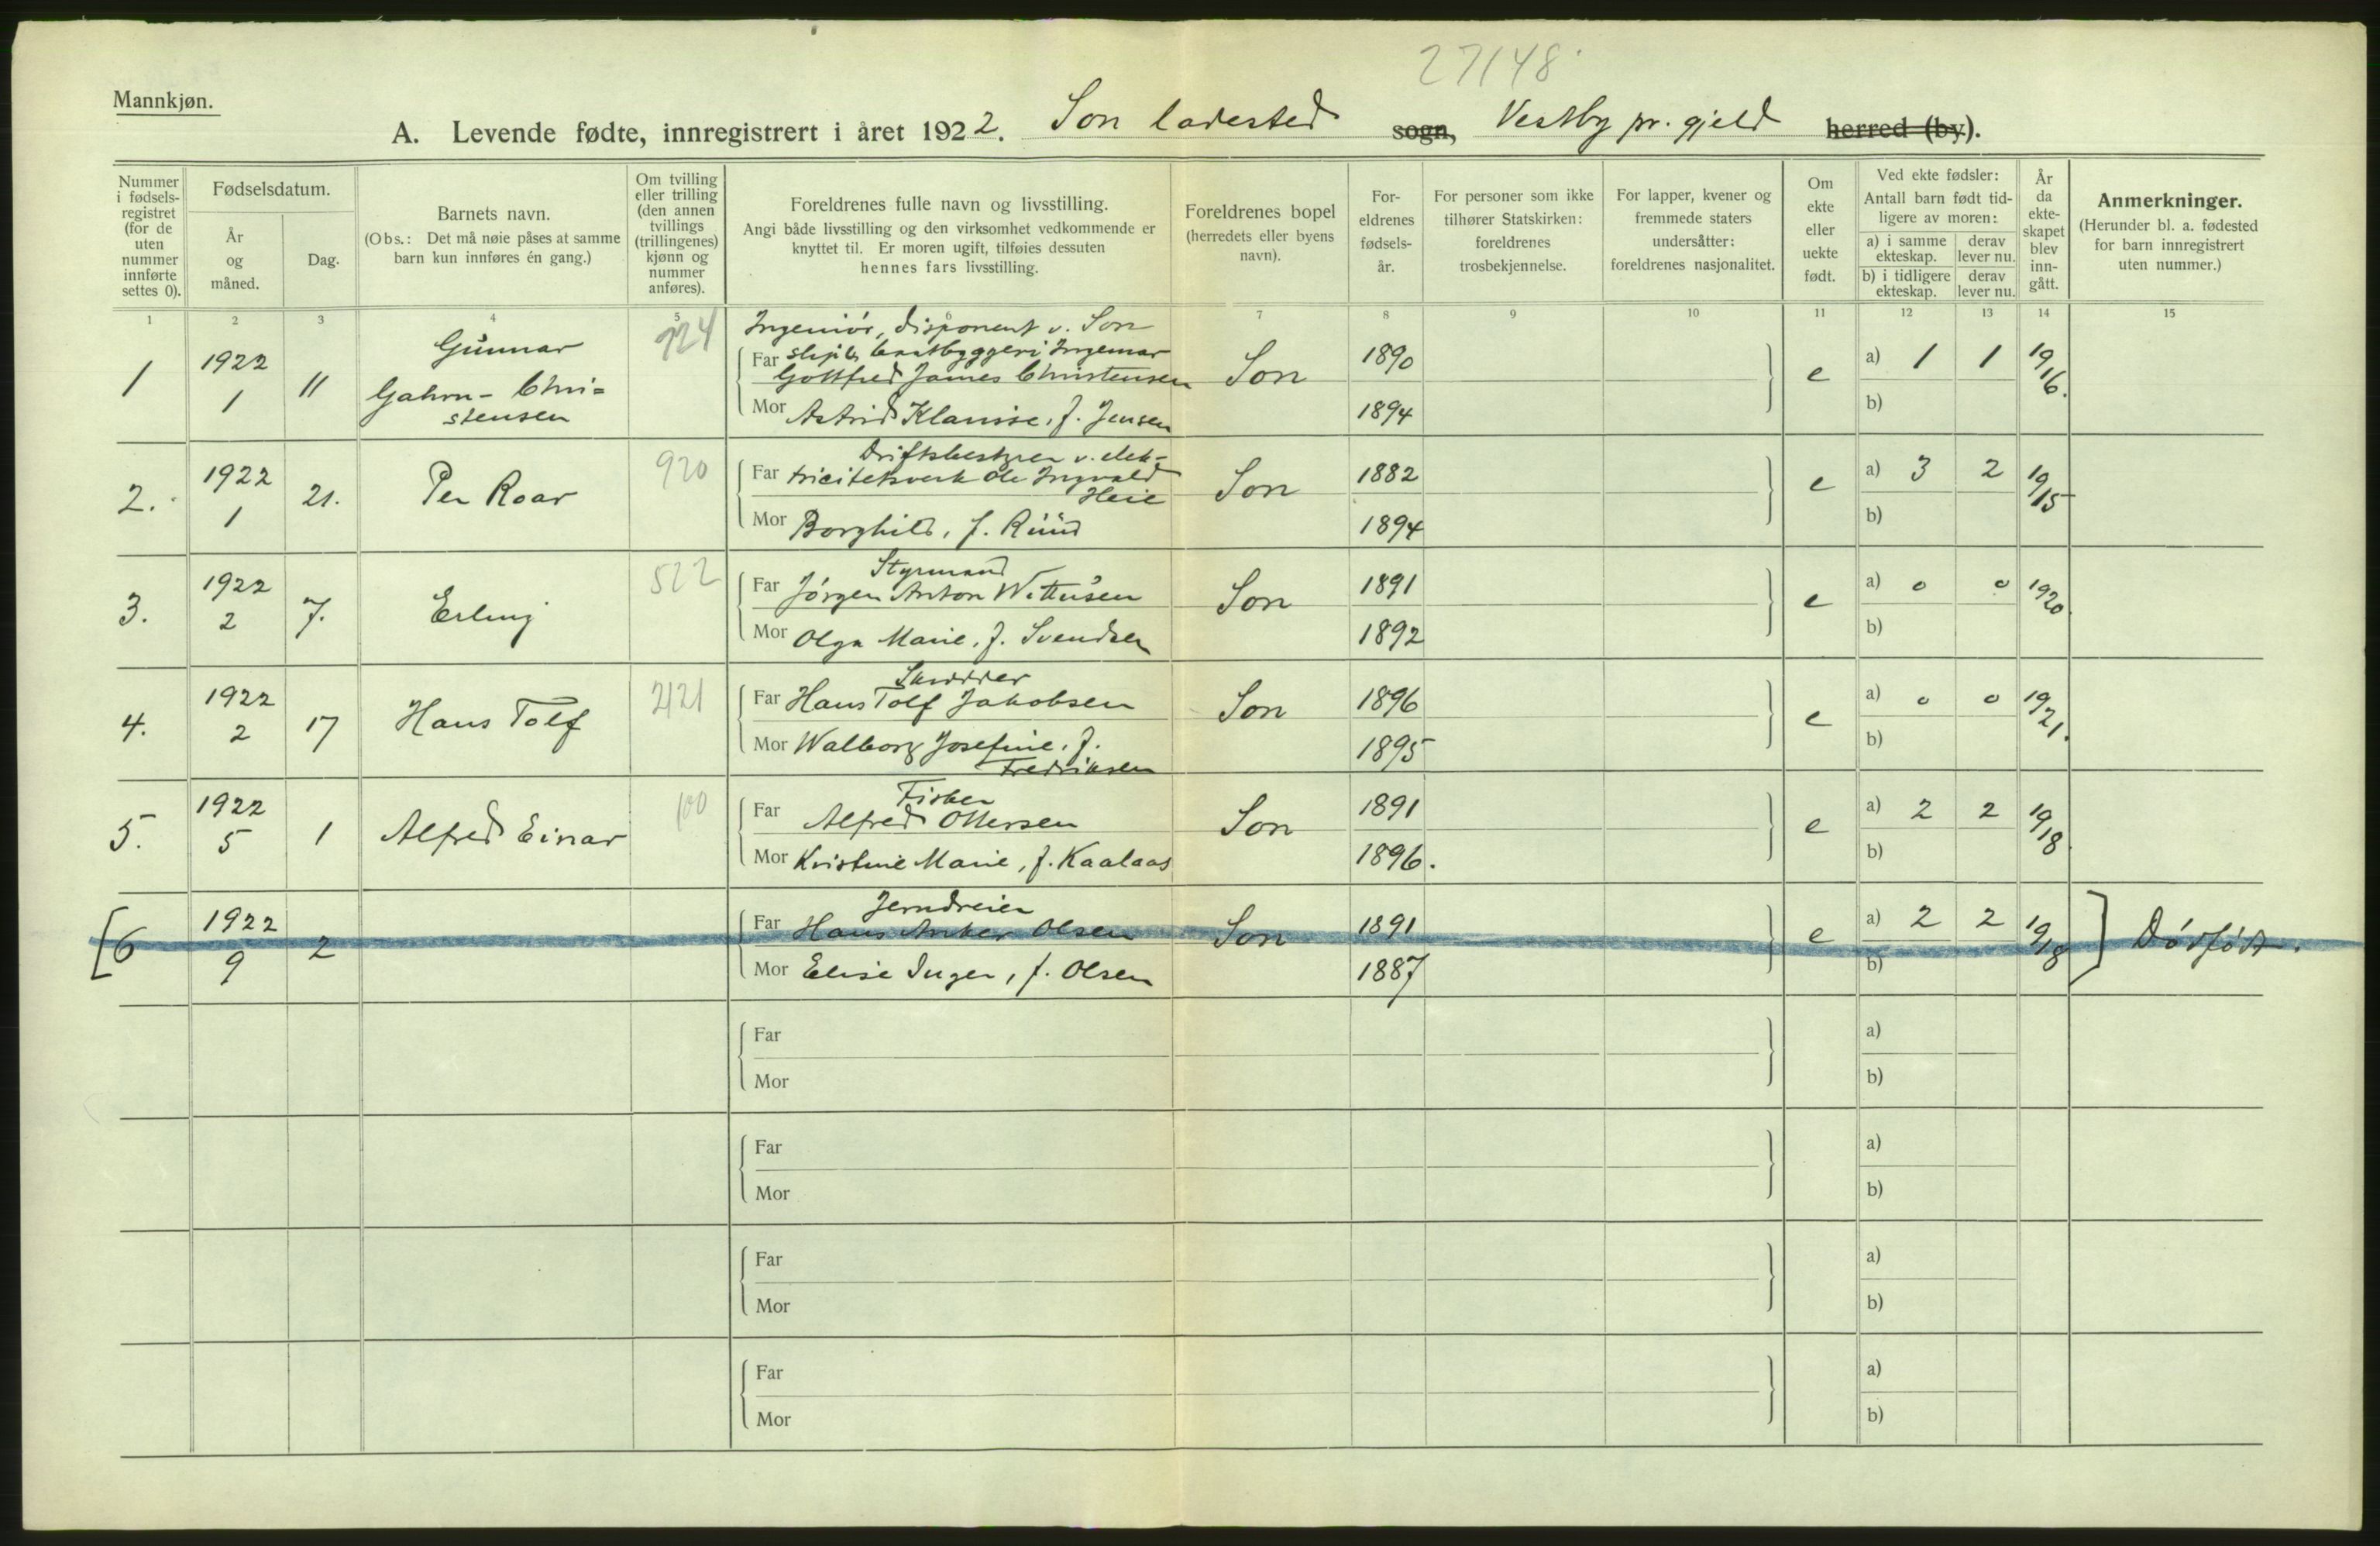 27148
Mannkjøn.
A. Levende fødte, innregistrert i året 1922. Son ladested sogn, Vestby pr. gjeld herred (by).
Nummer i fødsels-registret (for de uten nummer innførte settes 0).
Fødselsdatum.
År og måned.
Dag.
Barnets navn.
(Obs.: Det må nøie påses at samme barn kun innføres én gang.)
Om tvilling eller trilling (den annen tvillings (trillingenes) kjønn og nummer anføres).
Foreldrenes fulle navn og livsstilling.
Angi både livsstilling og den virksomhet vedkommende er knyttet til. Er moren ugift, tilføies dessuten hennes fars livsstilling.
Foreldrenes bopel (herredets eller byens navn).
For-eldrenes fødsels-år.
For personer som ikke tilhører Statskirken: foreldrenes trosbekjennelse.
For lapper, kvener og fremmede staters undersåtter: foreldrenes nasjonalitet.
Om ekte eller uekte født.
Ved ekte fødsler:
Antall barn født tid-ligere av moren:
a) i samme ekteskap.
derav lever nu.
b) i tidligere ekteskap.
derav lever nu.
År da ekte-skapet blev inn-gått.
Anmerkninger.
(Herunder bl. a. fødested for barn innregistrert uten nummer.)
1 2 3 4 5 7 8 9 10 11 12 13 14 15
1 1922 1 11 Gunnar Gahrn-Chri=stensen 724
Ingeniör, disponent v. Son
Far slip & baatbyggeri Ingemar
Gottfred James Christensen
Son 1890 e a) 1 1 1916.
Mor Astrid Klausine, f. Jensen 1894 b)
2. 1922 1 21. Per Roar 920
Driftsbestyrer v. elek-
Far tricitetsverk Ole Ingvald
Heie
Son 1882 e a) 3 2 1915
Mor Borghild, f. Ruud 1894 b)
3. 1922 2 7. Erling 522
Styrmand
Far Jörgen Anton Wittusen Son 1891 e a) 0 0 1920
Mor Olga Marie, f. Svendsen 1892 b)
4. 1922 2 17 Hans Tolf 2121
Skrædder
Far Hans Tolf Jakobsen Son 1896 e a) 0 0 1921.
Mor Walborg Josefine, f.
Fredriksen 1895 b)
5. 1922 5 1 Alfred Einar 100
Fisker
Far Alfred Ottersen Son 1891 e a) 2 2 1918
Mor Kristine Marie, f. Kaalaas 1896. b)
[6 1922 9 2
Jerndreier
Far Hans Anker Olsen Son 1891 e a) 2 2 1918 ] Dödfödt.
Mor Elise Inger, f. Olsen 1887 b)
Far a)
Mor b)
Far a)
Mor b)
Far a)
Mor b)
Far a)
Mor b)